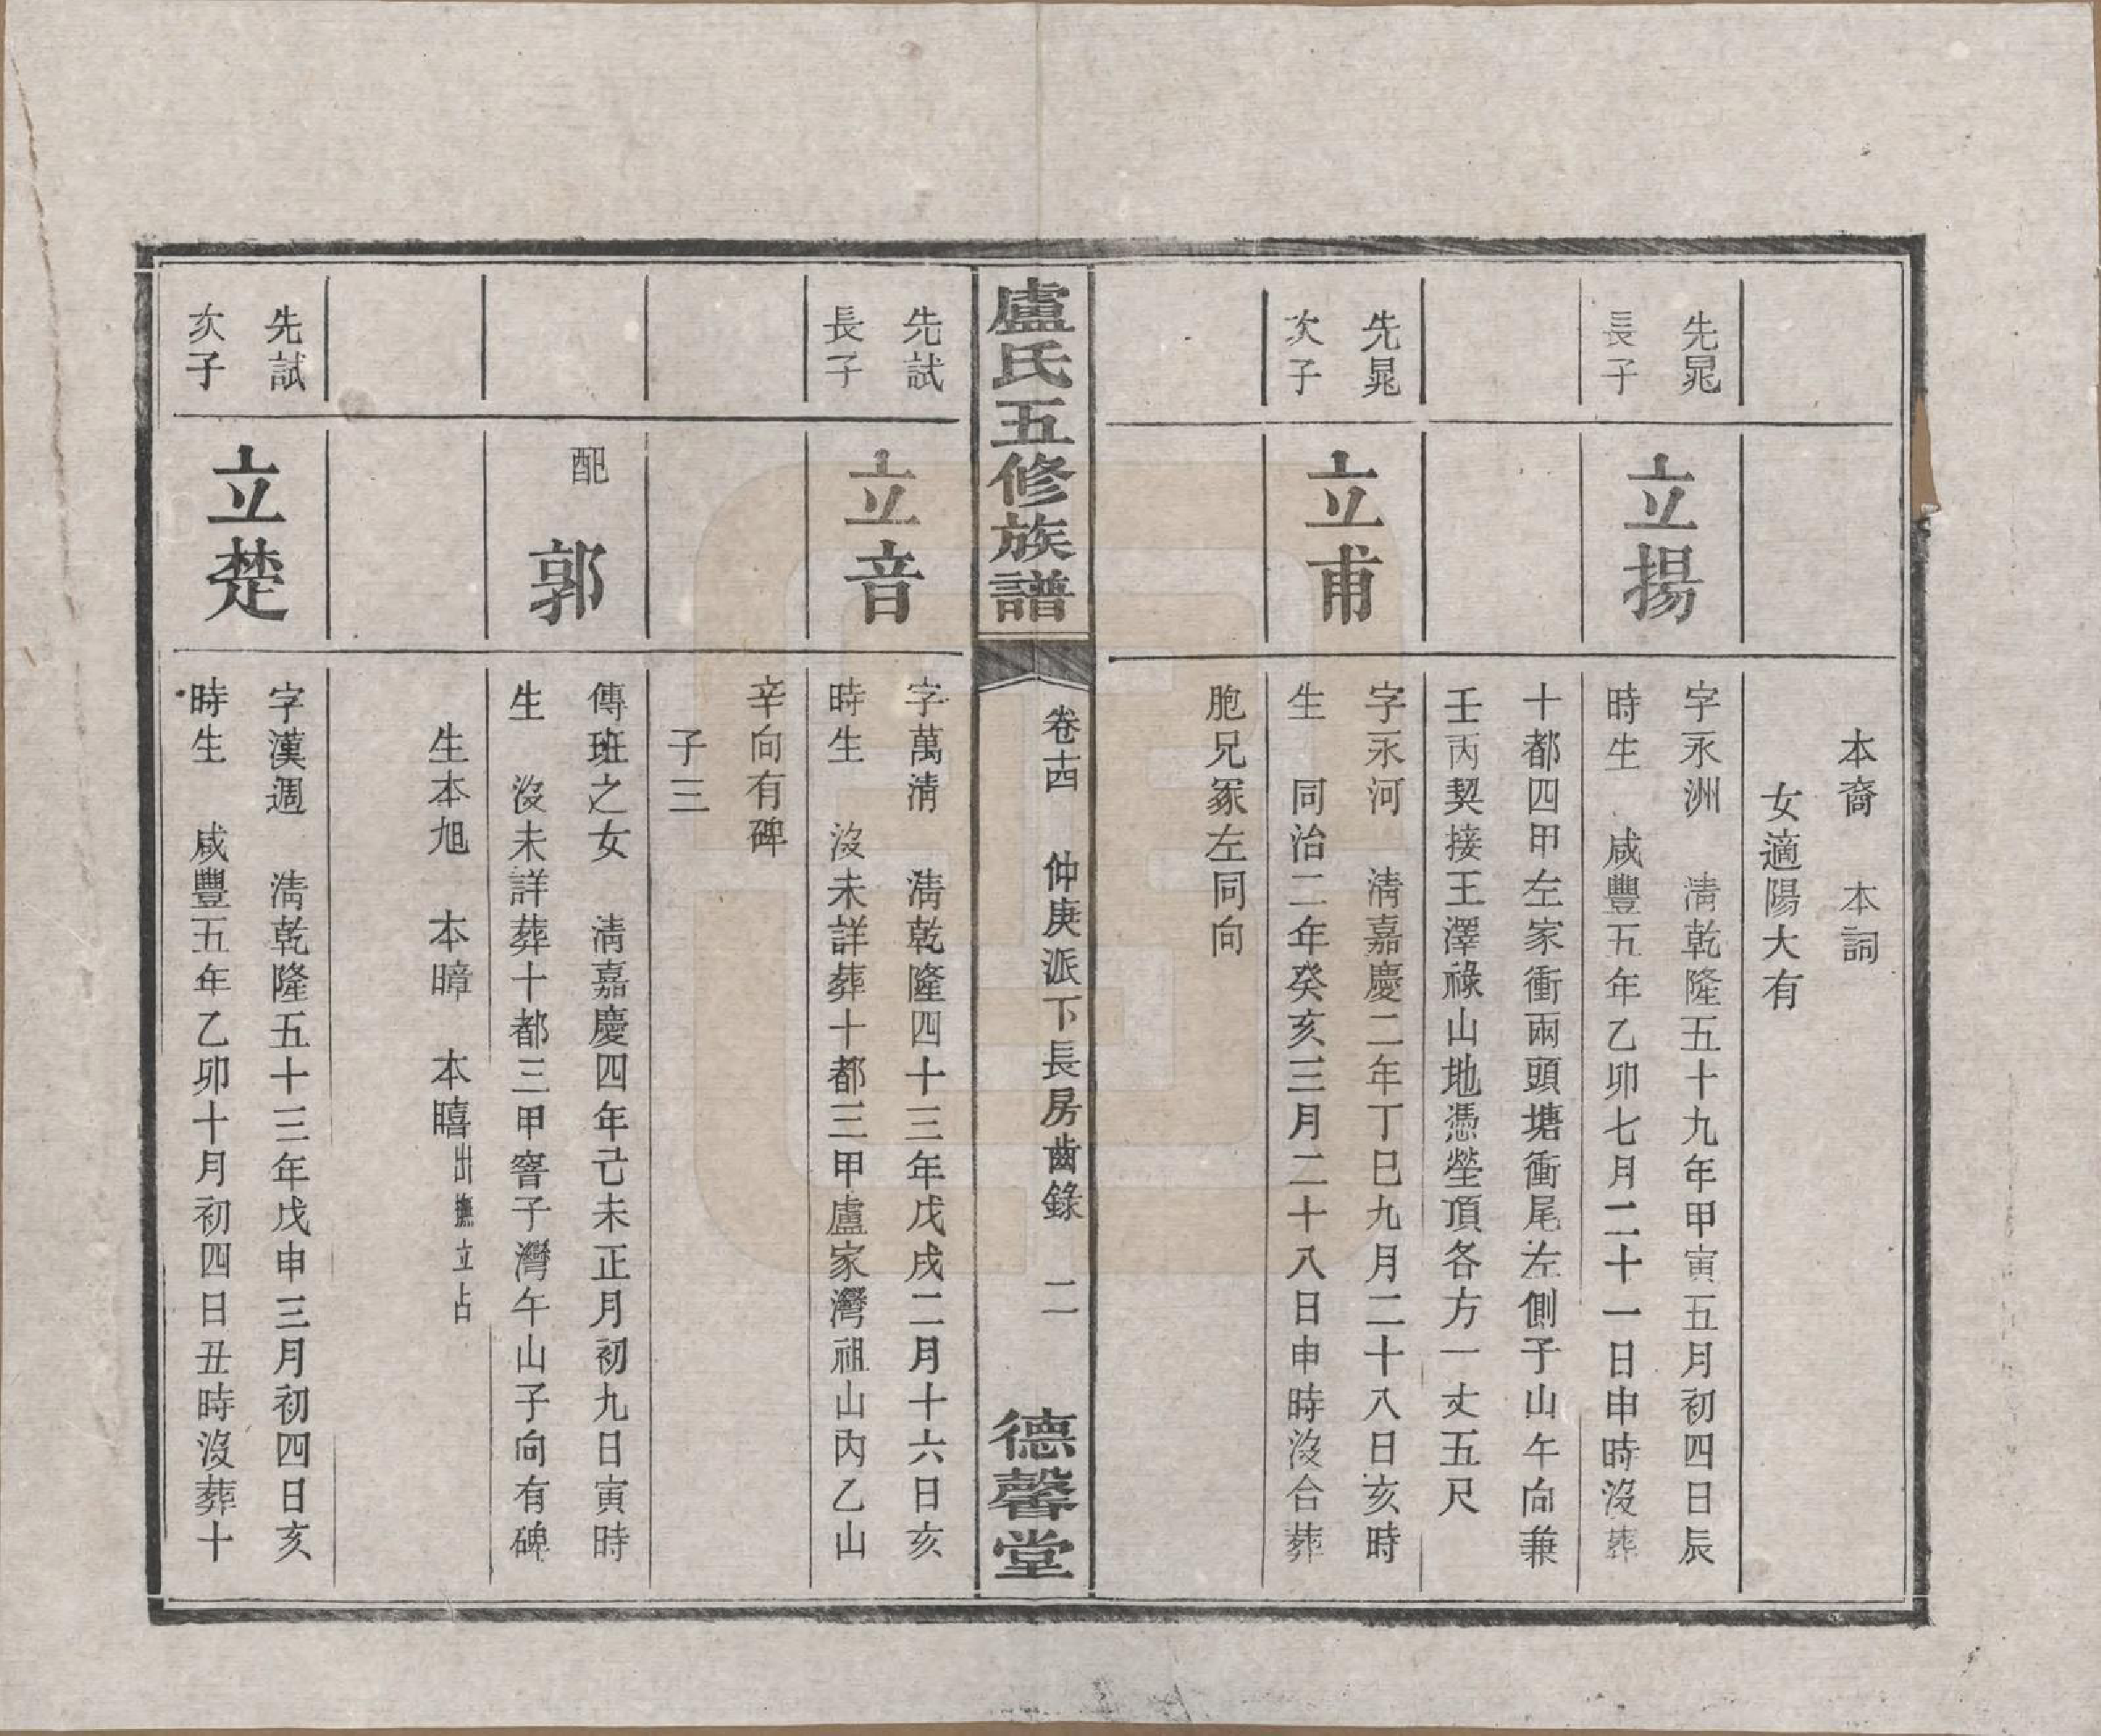 本裔　本詞
女適陽大有
先晁
長子
立揚
字永洲　清乾隆五十九年甲寅五月初四日辰
時生　咸豐五年乙卯七月二十一日申時沒葬
十都四甲左家衝兩頭塘衝尾左側子山午向兼
壬丙契接王澤祿山地憑塋頂各方一丈五尺
先晁
次子
立甫
字永河　清嘉慶二年丁巳九月二十八日亥時
生　同治二年癸亥三月二十八日申時沒合葬
胞兄冢左同向
盧氏五修族譜
卷十四　仲庚派下長房齒錄　二
德馨堂
先試
長子
立音
字萬清　清乾隆四十三年戊戌二月十六日亥
時生　沒未詳葬十都三甲盧家灣祖山內乙山
辛向有碑
子三
配　郭
傳班之女　清嘉慶四年己未正月初九日寅時
生　沒未詳葬十都三甲窨子灣午山子向有碑
生本旭　本暲　本暿出撫立占
先試
次子
立楚
字漢週　清乾隆五十三年戊申三月初四日亥
時生　咸豐五年乙卯十月初四日丑時沒葬十